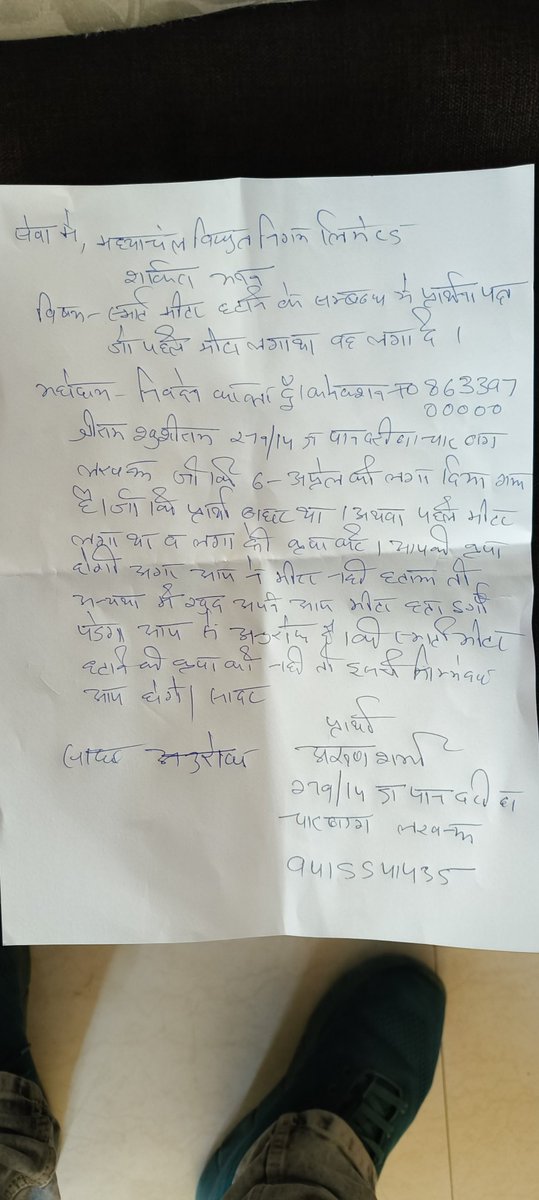 सेवा में, मध्यांचल विधुत निगम लिमिटेड
शक्ति भवन
विषय- स्मार्ट मीटर हटाने के सम्बन्ध मे प्रार्थना पत्र
जो पहले मीटर लगा था वह लगा दे ।
महोदय - निवेदन करता हूँ। कनेक्शन 
00000
श्रीराम 279/14 पान दरीबा चार बाग
लखनऊ जो कि 6- अप्रैल को लगा दिया गया
है। जो कि प्रार्थी था । अथवा पहले मीटर
लगा था व लगा की कृपा करें । आपकी कृपा
होगी अगर आप ने मीटर नही हटाया तो
अन्यथा मैं खुद अपने आप मीटर हटा
पडेगा आप से अनुरोध है। कि स्मार्ट मीटर
हटाने की कृपा करे नही तो इसकी
आप होगे। सादर
प्रार्थी
सादर अनुरोध
अरूण शर्मा
279/14 पान दरीबा
चारबाग लखनऊ
9415541435